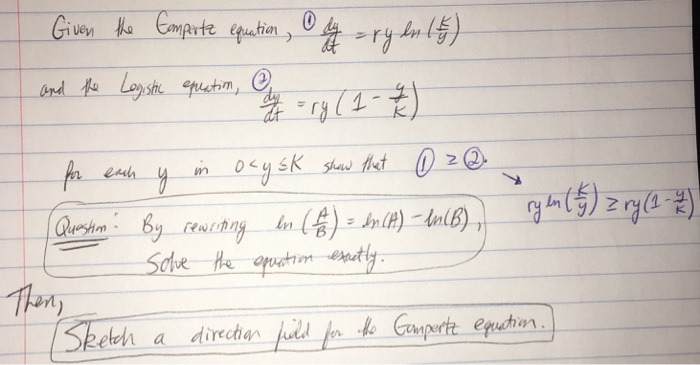 Given the Gompertz equation, ① dy/dt = ry ln (K/y)
and the Logistic equation, ② dy/dt = ry (1 - y/K)
for each y in 0<y≤K show that ① ≥ ②.
→ ry ln (K/y) ≥ ry (1 - y/K)
Question: By rewriting ln (A/B) = ln(A) - ln(B),
Solve the equation exactly.
Then,
Sketch a direction field for the Gompertz equation.